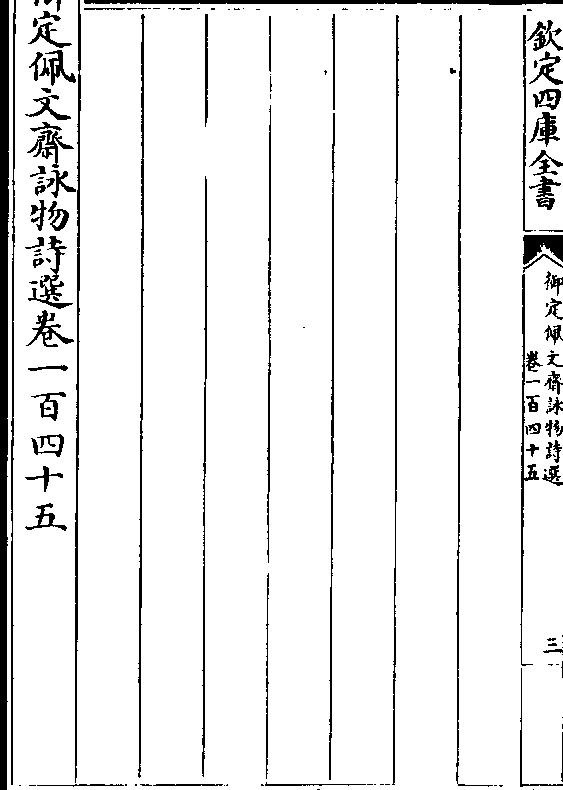 欽定四庫全書
御定佩文齋詠物詩選
卷一百四十五
三
御定佩文齋詠物詩選卷一百四十五